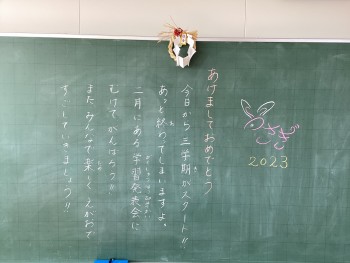 うさぎ
2023
あけましておめでとう
今日から三学期がスタート!!
あっと終わってしまいますよ。
二月にある学習発表会に
むけてがんばろう
また みんなで楽しく えがおで
すごしていきましょう!!